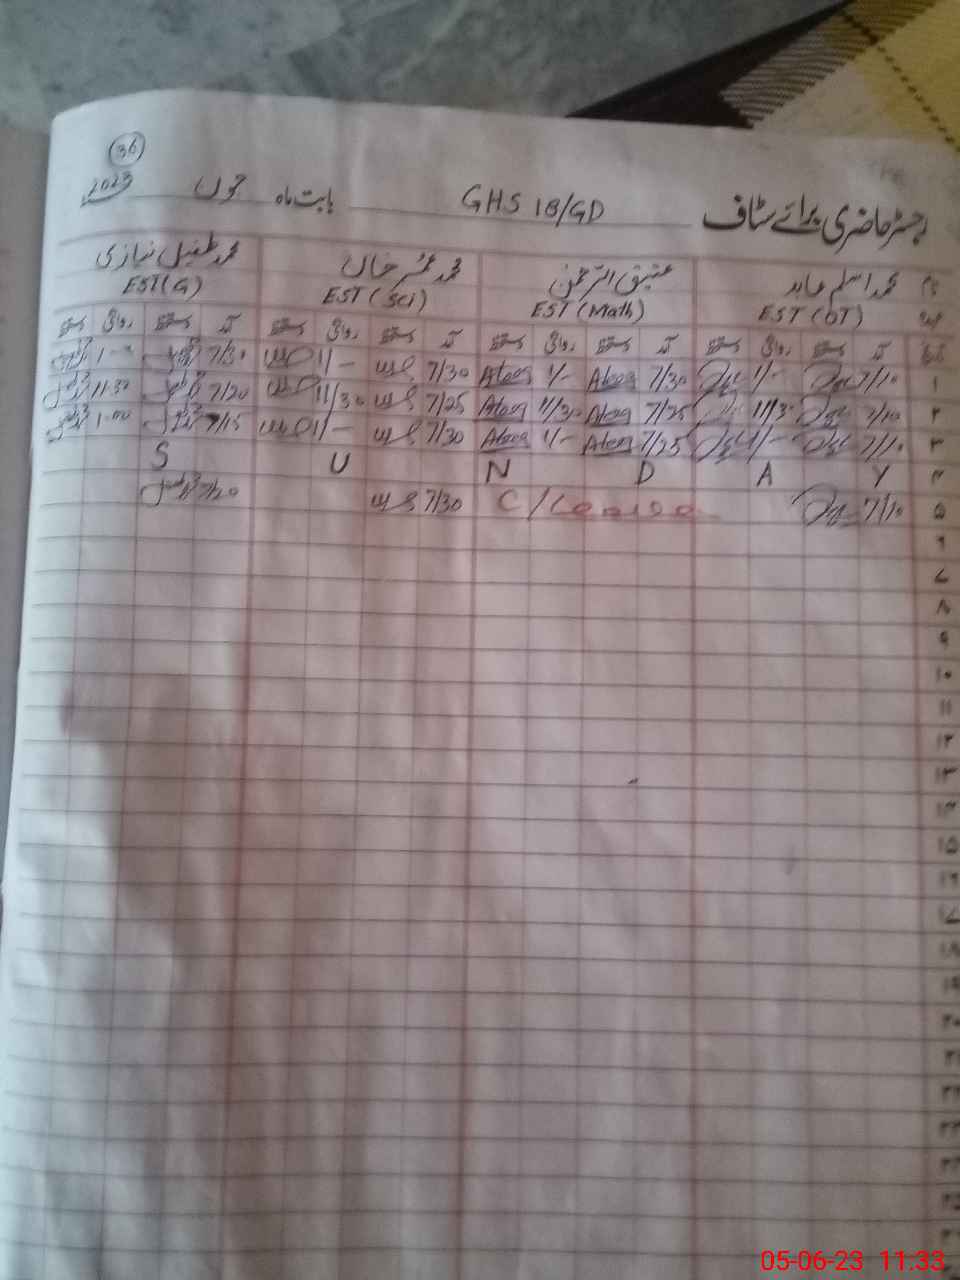 36
رجسٹر حاضری برائے سٹاف GHS 18/GD بابت ماہ جون 2023
نام محمد اسلم عابد عتیق الرحمٰن محمد عمر خان محمد طفیل نیازی
عہدہ EST (OT) EST (Math) EST (Sci) EST (G)
تاریخ آمد دستخط روانگی دستخط آمد دستخط روانگی دستخط آمد دستخط روانگی دستخط آمد دستخط روانگی دستخط
۱ 7/10 1/- 7/30 Ateeq 1/- Ateeq 7/30 1/- 7/30 1-00
۲ 7/10 11/30 7/25 Ateeq 11/30 Ateeq 7/25 11/30 7/20 11-30
۳ 7/10 1/- 7/25 Ateeq 1/- Ateeq 7/30 1/- 7/15 1-00
۴ S U N D A Y
۵ 7/10 C/Leave 7/30 7/20
۶
۷
۸
۹
۱۰
۱۱
۱۲
۱۳
۱۴
۱۵
۱۶
۱۷
۱۸
۱۹
۲۰
۲۱
۲۲
۲۳
۲۴
۲۵
05-06-23 11:33